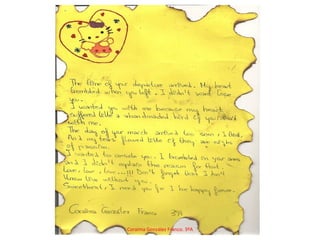 The time of your departure arrived. My heart
trembled when you left. I didn't want lose
you.
I wanted you with me because my heart
suffered like a abandonated bird if you
with me.
The day of your march arrived too soon, I
And my tears flowed like if they are nights
of passion.
I wanted to console you. I trembled in your arms
and I didn't explain the reason for that
Love, love, love...!!! Don't forget that I don't
know live without you.
Sweetheart, I need you for I be happy forever.
Coralina González Franco 3ºA
Coralina González Franco, 3ºA